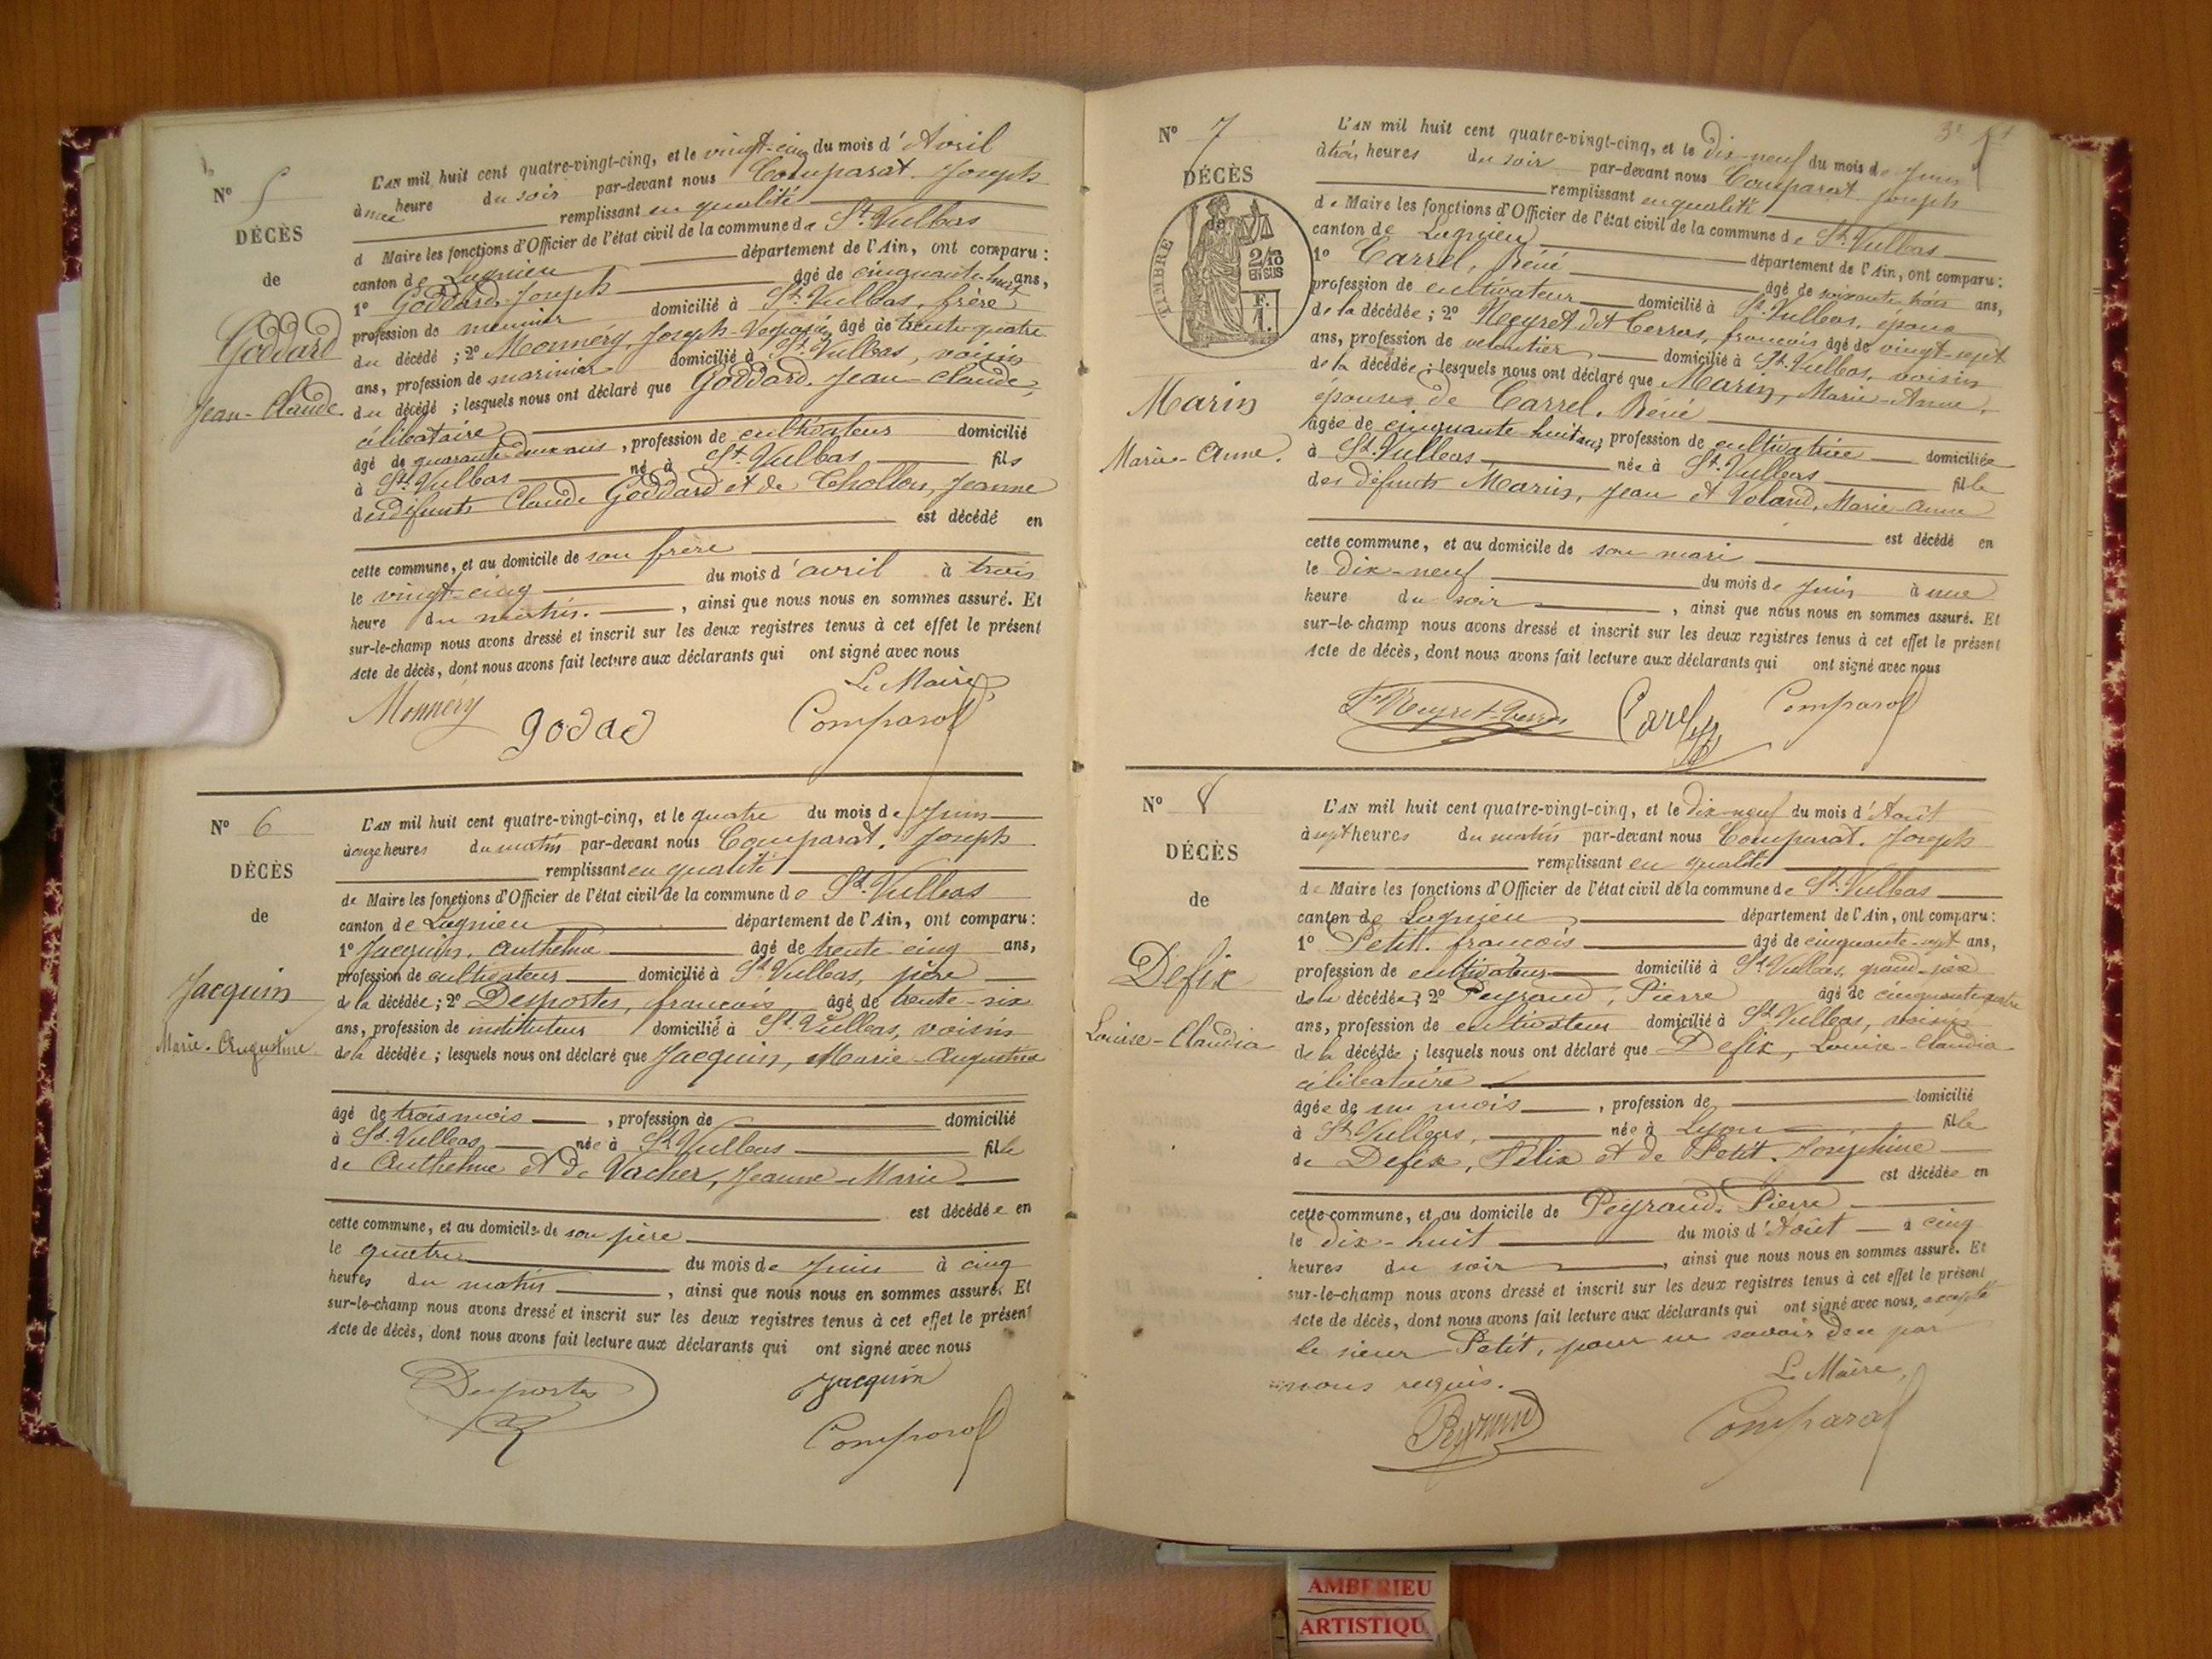 N° 5
DÉCÈS
de
Goddard
Jean-Claude.
L'AN mil huit cent quatre-vingt-cinq, et le vingt-cinq du mois d'Avril
à une heure du soir par-devant nous Comparat. Joseph
remplissant en qualité
d Maire les fonctions d'Officier de l'état civil de la commune de St Vulbas
canton de Lagnieu département de l'Ain, ont comparu :
1° Goddard, Joseph âgé de cinquante-huit ans,
profession de meunier domicilié à St Vulbas, frère
du décédé ; 2° Monnéry, Joseph- âgé de trente-quatre
ans, profession de marinier domicilié à St Vulbas, voisin
du décédé ; lesquels nous ont déclaré que Goddard. Jean-Claude,
célibataire
âgé de quarante-deux ans, profession de cultivateur domicilié
à St Vulbas né à St Vulbas fils
des défunts Claude Goddard et de Chollou, Jeanne
est décédé en
cette commune, et au domicile de son frère
le vingt-cinq du mois d'avril à trois
heure du matin. , ainsi que nous nous en sommes assuré. Et
sur-le-champ nous avons dressé et inscrit sur les deux registres tenus à cet effet le présent
Acte de décès, dont nous avons fait lecture aux déclarants qui ont signé avec nous
Le Maire
Monnéry godad Comparat
N° 6
DÉCÈS
de
Jacquin
Marie-Augustine
L'AN mil huit cent quatre-vingt-cinq, et le quatre du mois de Juin
à onze heures du matin par-devant nous Comparat. Joseph
remplissant en qualité
de Maire les fonctions d'Officier de l'état civil de la commune de St Vulbas
canton de Lagnieu département de l'Ain, ont comparu :
1° Jacquin, Anthelme âgé de trente-cinq ans,
profession de cultivateur domicilié à St Vulbas, père
de la décédée ; 2° Desportes, francois âgé de trente-six
ans, profession de instituteur domicilié à St Vulbas, voisin
de la décédée ; lesquels nous ont déclaré que Jacquin, Marie-Augustine
âgé de trois mois , profession de domicilié
à St Vulbas née à St Vulbas fille
de Anthelme et de Vacher, Jeanne-Marie
est décédée en
cette commune, et au domicile de son père
le quatre du mois de Juin à cinq
heures du matin , ainsi que nous nous en sommes assuré. Et
sur-le-champ nous avons dressé et inscrit sur les deux registres tenus à cet effet le présent
Acte de décès, dont nous avons fait lecture aux déclarants qui ont signé avec nous
Desportes Jacquin
Comparat
3e
N° 7
DÉCÈS
de
TIMBRE
2/10
EN SUS
F.
1.
Marin
Marie-Anne.
L'AN mil huit cent quatre-vingt-cinq, et le dix-neuf du mois de Juin
à trois heures du soir par-devant nous Comparat. Joseph
remplissant en qualité
de Maire les fonctions d'Officier de l'état civil de la commune de St Vulbas
canton de Lagnieu département de l'Ain, ont comparu :
1° Carrel, Réné âgé de soixante-trois ans,
profession de cultivateur domicilié à St Vulbas, époux
de la décédée ; 2° Neyret dit Cerras, francois âgé de vingt-sept
ans, profession de domicilié à St Vulbas, voisin
de la décédée ; lesquels nous ont déclaré que Marin, Marie-Anne,
épouse de Carrel. Réné
âgée de cinquante-huit ans, profession de cultivatrice domiciliée
à St Vulbas née à St Vulbas fille
des défunts Marin, Jean et Voland, Marie-Anne
est décédé en
cette commune, et au domicile de son mari
le dix-neuf du mois de Juin à une
heure du soir , ainsi que nous nous en sommes assuré. Et
sur-le-champ nous avons dressé et inscrit sur les deux registres tenus à cet effet le présent
Acte de décès, dont nous avons fait lecture aux déclarants qui ont signé avec nous
Carel Comparat
N° 8
DÉCÈS
de
Defix
Louise-Claudia
L'AN mil huit cent quatre-vingt-cinq, et le dix-neuf du mois d'Août
à sept heures du matin par-devant nous Comparat. Joseph
remplissant en qualité
de Maire les fonctions d'Officier de l'état civil de la commune de St Vulbas
canton de Lagnieu département de l'Ain, ont comparu :
1° Petit. francois âgé de cinquante-sept ans,
profession de cultivateur domicilié à St Vulbas, grand-père
de la décédée ; 2° Peyraud, Pierre âgé de cinquante-quatre
ans, profession de cultivateur domicilié à St Vulbas, voisin
de la décédée ; lesquels nous ont déclaré que Defix, Louise-Claudia
célibataire
âgée de un mois , profession de domicilié
à St Vulbas, née à Lyon fille
de Defix, Félix et de Petit. Joséphine
est décédée en
cette commune, et au domicile de Peyraud. Pierre
le dix-huit du mois d'Août à cinq
heures du soir , ainsi que nous nous en sommes assuré. Et
sur-le-champ nous avons dressé et inscrit sur les deux registres tenus à cet effet le présent
Acte de décès, dont nous avons fait lecture aux déclarants qui ont signé avec nous, excepté
le sieur Petit, pour ne savoir de ce par
nous requis.
Le Maire,
Peyraud Comparat
AMBERIEU
ARTISTIQU